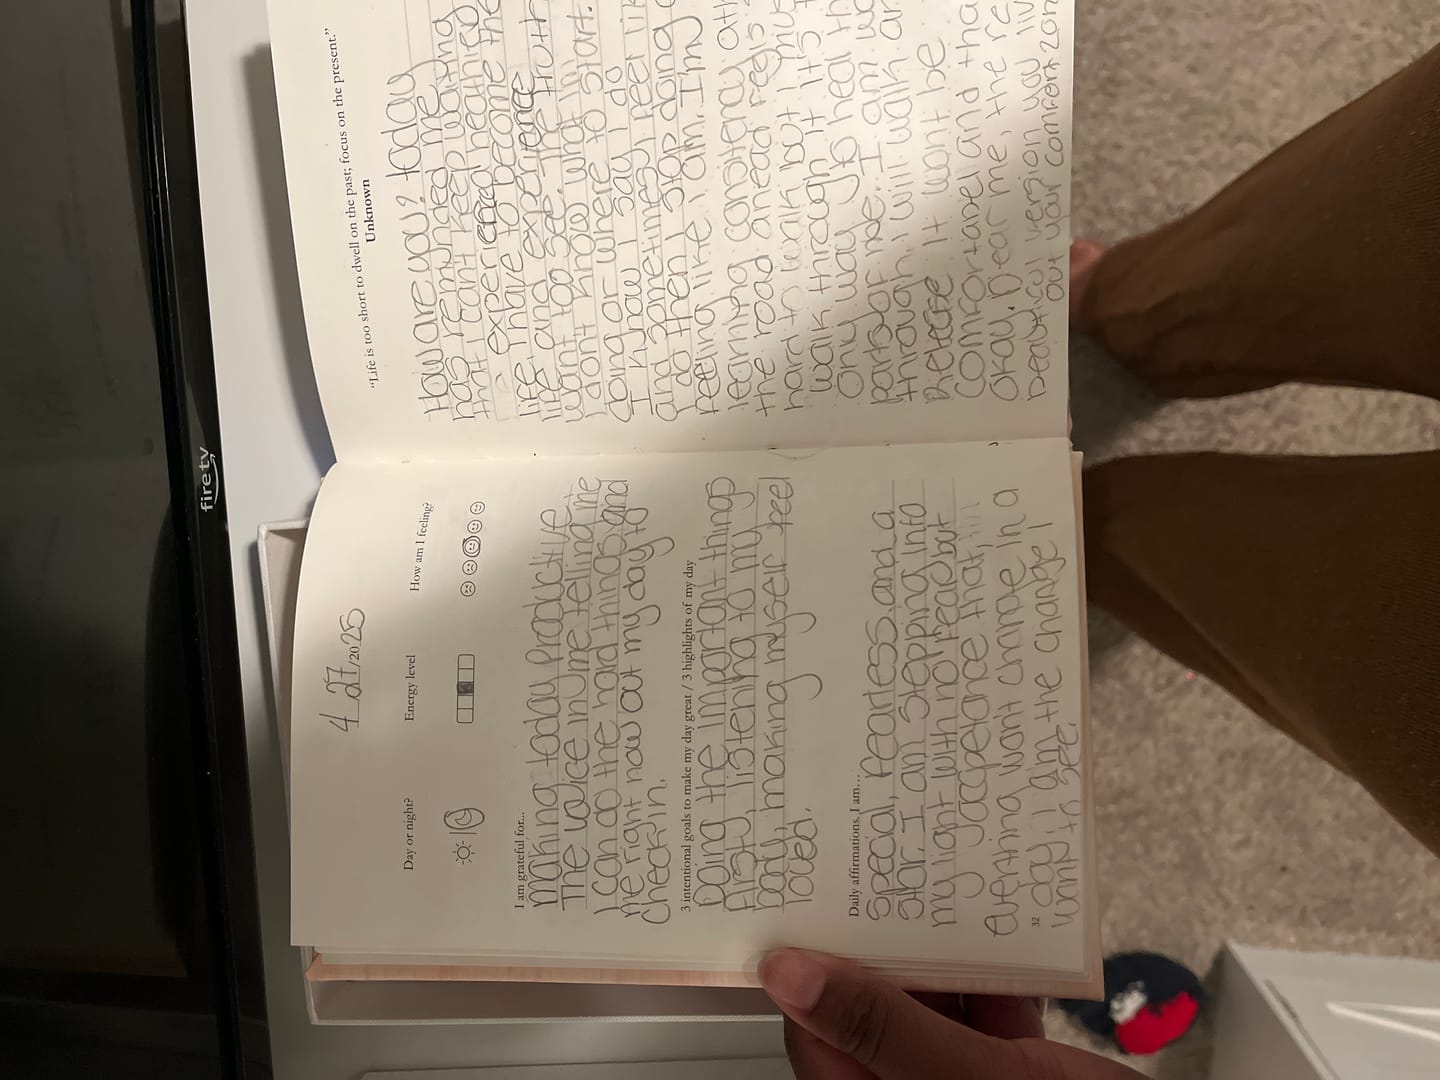 firetv
4 27/2025
Day or night?
Energy level
How am I feeling?
I am grateful for...
making today productive.
The voice in me telling me
I can do the hard things and
me right now out my day to
check in.
3 intentional goals to make my day great / 3 highlights of my day
Doing the important things
first, listening to my
body, making myself feel
loved.
Daily affirmations. I am...
special, fearless and a
star. I am stepping into
my light with no fear but
acceptance that
everthing wont change in a
day, I am the change I
want to see.
32
"Life is too short to dwell on the past; focus on the present."
Unknown
How are you? today
has reminded me
that I cant keep waiting
experienced
experience the
life I have to become the
life and experience
want to see. The truth
I dont know what im
doing or where to start.
I know say I do
and sometimes I feel
do then I stop doing
feeling like I am. I'm
learning consitency
the road ahead feels
hard to walk but I
walk through it it's
only way to hear
parts of me. I am
through, I will walk
Release it wont be
comfortable and
okay. Dear me, the
beautiful version you
out your comfort zone